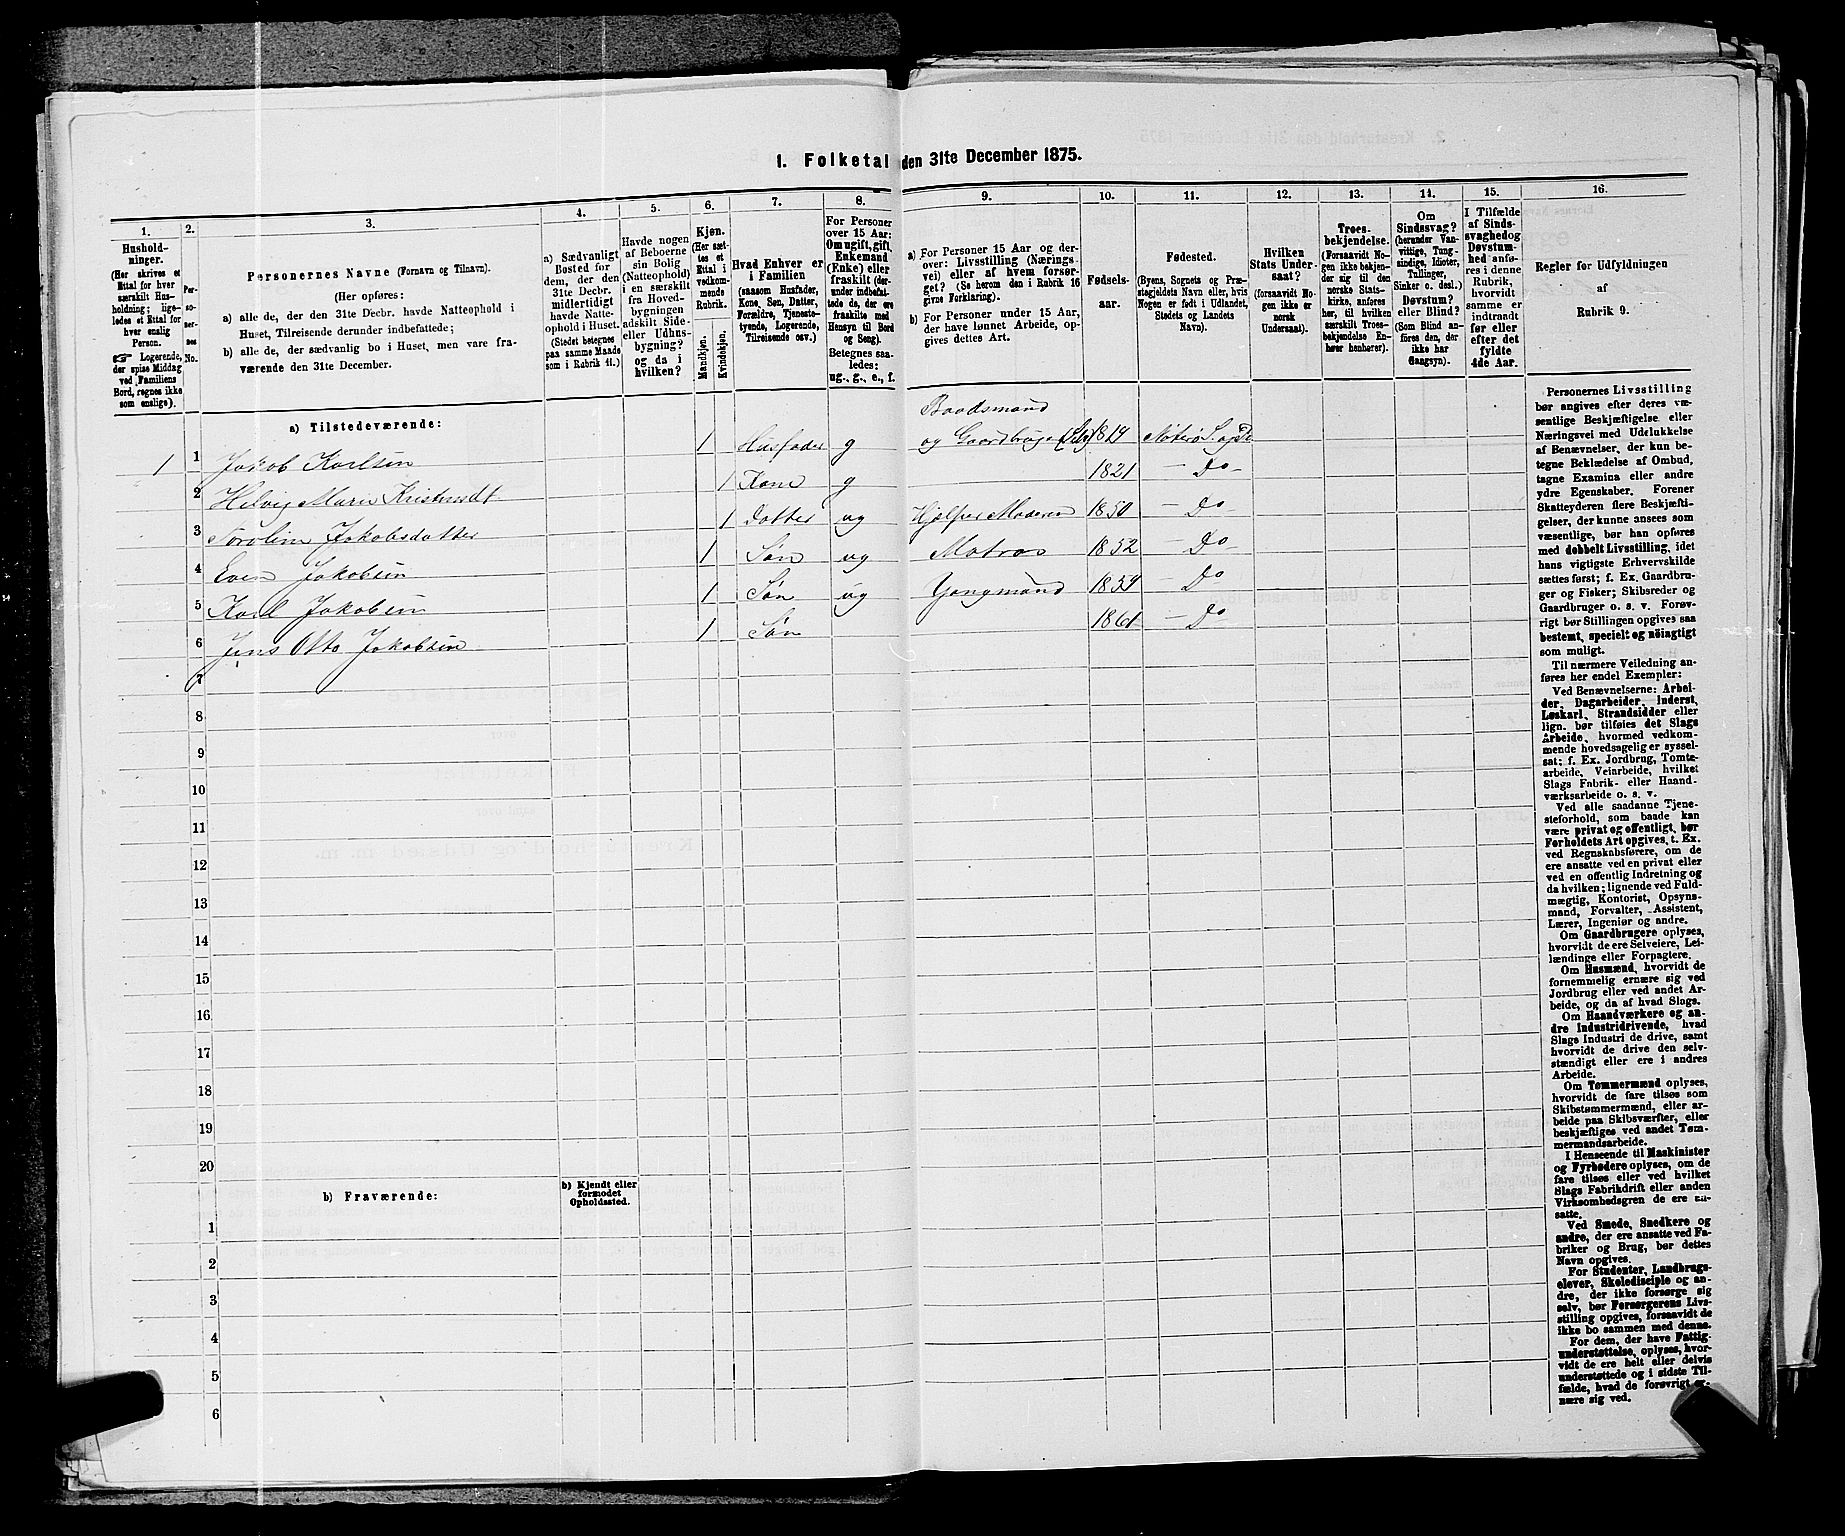 1. Folketal den 31te December 1875.
1.
Hushold-
ninger.
(Her skrives et
Ettal for hver
særskilt Hus-
holdning; lige-
ledes et Ettal for
hver enslig
Person.
☞ Logerende,
der spise Middag
ved Familiens
Bord, regnes ikke
som enslige).
2.
Per-
so-
ner-
nes
No.
3.
Personernes Navne (Fornavn og Tilnavn).
(Her opføres:
a) alle de, der den 31te Decbr. havde Natteophold i
Huset, Tilreisende derunder indbefattede;
b) alle de, der sædvanlig bo i Huset, men vare fra-
værende den 31te December.
4.
a) Sædvanligt
Bosted for
dem, der den
31te Decbr.
midlertidigt
havde Natte-
ophold i Huset.
(Stedet betegnes
paa samme Maade
som i Rubrik 11.)
5.
Havde nogen
af Beboerne
sin Bolig
(Natteophold)
i en særskilt
fra Hoved-
bygningen
adskilt Side-
eller Udhus-
bygning?
og da i
hvilken?
6.
Kjøn.
(Her sæt-
tes et
Ettal i
vedkom-
mende
Rubrik.
Mandkjøn.
Kvindekjøn.
7.
Hvad Enhver er
i Familien
(saasom Husfader,
Kone, Søn, Datter,
Forældre, Tjeneste-
tyende, Logerende,
Tilreisende osv.)
8.
For Personer
over 15 Aar:
Om ugift, gift,
Enkemand
(Enke) eller
fraskilt (der-
under indbefat-
tede de, der ere
fraskilte med
Hensyn til Bord
og Seng).
Betegnes saa-
ledes:
ug., g., e., f.
9.
a) For Personer 15 Aar og der-
over: Livsstilling (Nærings-
vei) eller af hvem forsør-
get? (Se herom den i Rubrik 16
givne Forklaring).
b) For Personer under 15 Aar,
der have lønnet Arbeide, op-
gives dettes Art.
10.
Fødsels-
aar.
11.
Fødested.
(Byens, Sognets og Præ-
stegjeldets Navn eller, hvis
Nogen er født i Udlandet,
Stedets og Landets
Navn).
12.
Hvilken
Stats Under-
saat?
(forsaavidt No-
gen ikke er
norsk
Undersaat).
13.
Troes-
bekjendelse.
(Forsaavidt No-
gen ikke bekjen-
der sig til den
norske Stats-
kirke, anføres
her, til hvilken
særskilt Troes-
bekjendelse En-
hver henhører).
14.
Om
Sindssvag?
(herunder Van-
vittige, Tung-
sindige, Idioter,
Tullinger,
Sinker o. desl.)
Døvstum?
eller Blind?
(Som Blind an-
føres den, der
ikke har
Gangsyn).
15.
I Tilfælde
af Sinds-
svaghed og
Døvstum-
hed anfø-
res i denne
Rubrik,
hvorvidt
samme er
indtraadt
før eller
efter det
fyldte
4de Aar.
16.
Regler for Udfyldningen
af
Rubrik 9.
a) Tilstedeværende:
Baadsmand
1 1 Jakob Karlsen 1 Husfader g og Gaardbruger (Selv) 1819 Nøterø S. og P.
2 Helvig Marie Kristensdt 1 Kone g 1821 — Do —
3 Søroline Jakobsdatter 1 Datter ug Hjelper Moderen 1850 — Do —
4 Even Jakobsen 1 Søn ug Matros 1852 — Do
5 Karl Jakobsen 1 Søn ug Yongmand 1859 — Do
6 Jens Otto Jakobsen 1 Søn 1861 — Do
7
8
9
10
11
12
13
14
15
16
17
18
19
20
b) Fraværende:
b) Kjendt eller
formodet
Opholdssted.
1
2
3
4
5
6
Personernes Livsstilling
bør angives efter deres væ-
sentlige Beskjæftigelse eller
Næringsvei med Udelukkelse
af Benævnelser, der kun be-
tegne Beklædelse af Ombud,
tagne Examina eller andre
ydre Egenskaber. Forener
Skatteyderen flere Beskjæfti-
gelser, der kunne ansees som
væsentlige, bør han opføres
med dobbelt Livsstilling, idet
hans vigtigste Erhvervskilde
sættes først; f. Ex. Gaardbru-
ger og Fisker; Skibsreder og
Gaardbruger o. s. v. Forøv-
rigt bør Stillingen opgives saa
bestemt, specielt og nøiagtigt
som muligt.
Til nærmere Veiledning an-
føres her endel Exempler:
Ved Benævnelserne: Arbei-
der, Dagarbeider, Inderst,
Løskarl, Strandsidder eller
lign. bør tilføies det Slags
Arbeide, hvormed vedkom-
mende hovedsagelig er syssel-
sat; f. Ex. Jordbrug, Tomte-
arbeide, Veiarbeide, hvilket
Slags Fabrik- eller Haand-
værksarbeide o. s. v.
Ved alle saadanne Tjene-
steforhold, som baade kan
være privat og offentligt, bør
Forholdets Art opgives, t. Ex.
ved Regnskabsførere, om de
ere ansatte ved en privat eller
ved en offentlig Indretning og
da hvilken; lignende ved Fuld-
mægtig, Kontorist, Opsyns-
mand, Forvalter, Assistent,
Lærer, Ingeniør og andre.
Om Gaardbrugere oplyses,
hvorvidt de ere Selveiere, Lei-
lændinge eller Forpagtere.
Om Husmænd, hvorvidt de
fornemmelig ernære sig ved
Jordbrug eller ved andet Ar-
beide, og da af hvad Slags.
Om Haandværkere og an-
dre Industridrivende, hvad
Slags Industri de drive, samt
hvorvidt de drive den selv-
stændigt eller ere i andres
Arbeide.
Om Tømmermænd oplyses,
hvorvidt de fare tilsøs som
Skibstømmermænd, eller ar-
beide paa Skibsværfter, eller
beskjæftiges ved andet Tøm-
mermandsarbeide.
I Henseende til Maskinister
og Fyrbødere oplyses, om de
fare tilsøs eller ved hvilket
Slags Fabrikdrift eller anden
Virksomhedsgren de ere an-
satte.
Ved Smede, Snedkere og
andre, der ere ansatte ved Fa-
briker og Brug, bør dettes
Navn opgives.
For Studenter, Landbrugs-
elever, Skoledisciple og an-
dre, der ikke forsørge sig
selv, bør Forsørgerens Livs-
stilling opgives, forsaavidt de
ikke bo sammen med denne.
For dem, der have Fattig-
understøttelse, oplyses, hvor-
vidt de ere helt eller delvis
understøttede og i sidste Til-
fælde, hvad de forøvrigt er-
nære sig ved.